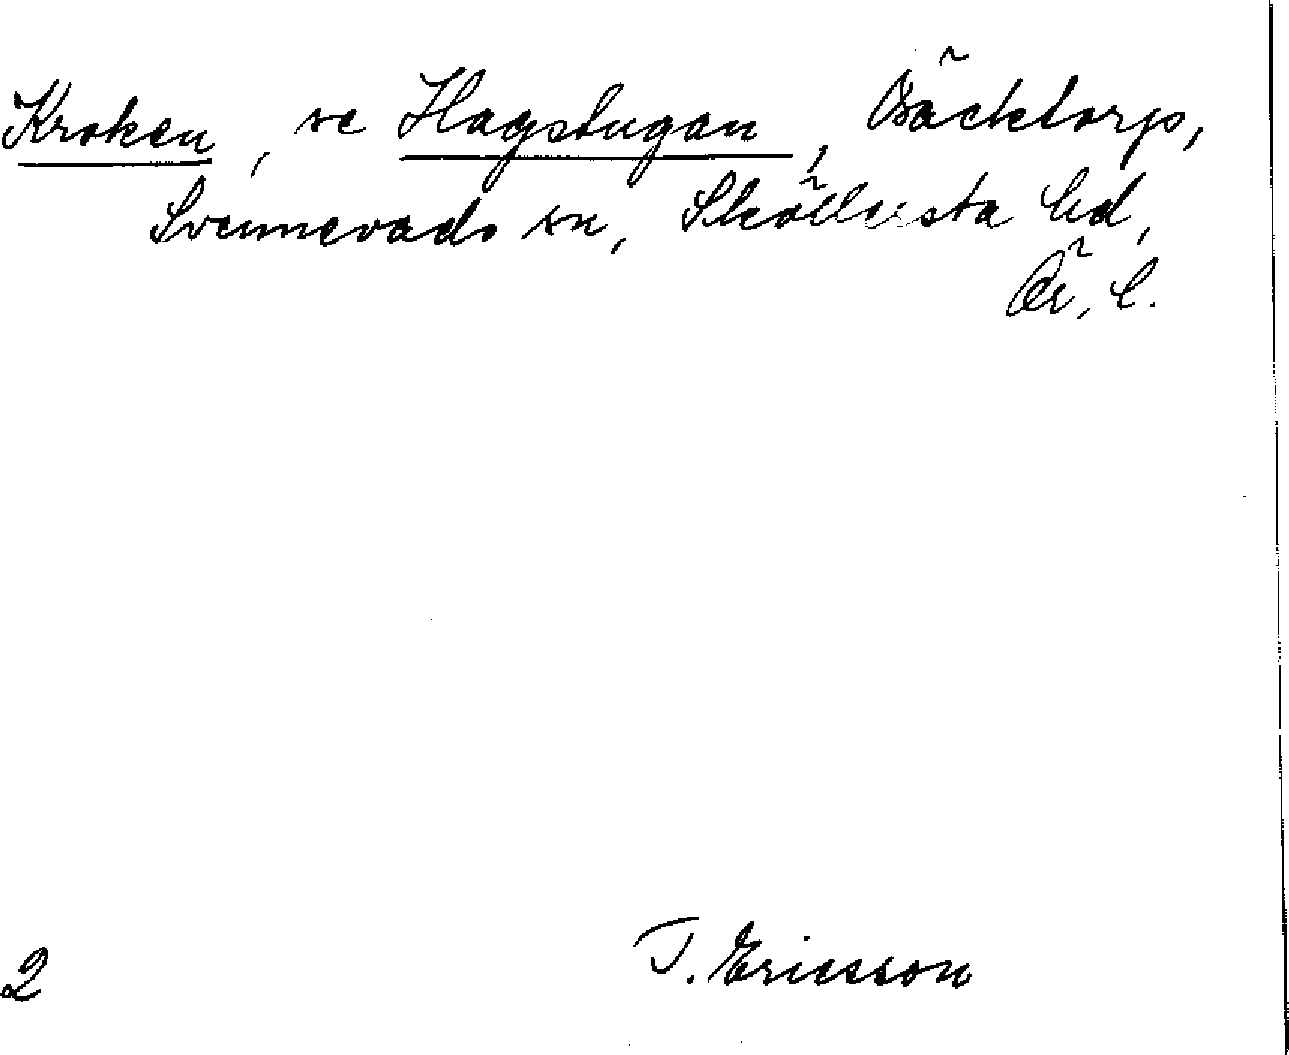 Kroken, se Hagstugan, Bäcktorp,
Svennevads sn, Sköllersta hd,
Ör. l.
T. Ericsson
2